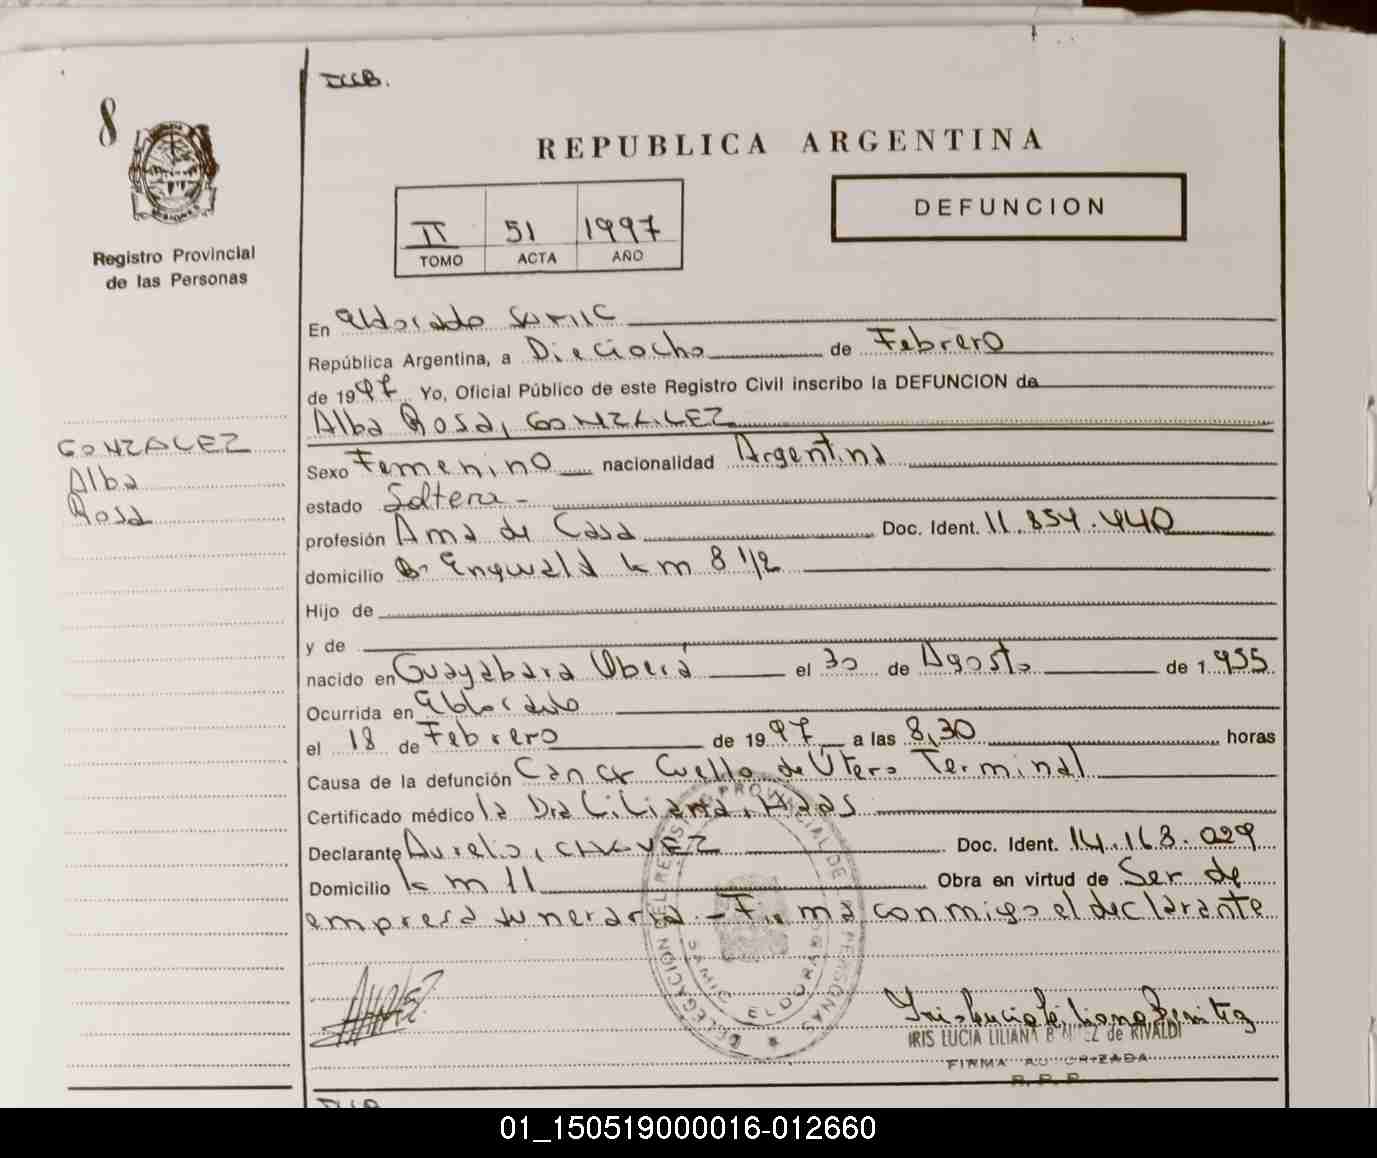 8
ILLB.
REPUBLICA ARGENTINA
II 51 1997
TOMO ACTA AÑO
DEFUNCION
Registro Provincial
de las Personas
En Eldorado SAMIC
República Argentina, a Dieciocho de Febrero
de 1997 Yo, Oficial Público de este Registro Civil inscribo la DEFUNCION de
Alba Rosa, GONZALEZ
GONZALEZ
Alba
Rosa
Sexo Femenino nacionalidad Argentina
estado Soltera -
profesión Ama de Casa Doc. Ident. 11.854.440
domicilio B. Engwald km 8 1/2
Hijo de
y de
nacido en Guayabera Oberá el 30 de Agosto de 1.955
Ocurrida en Eldorado
el 18 de Febrero de 1997 a las 8,30 horas
Causa de la defunción Cancer Cuello de Utero Terminal
Certificado médico la Dra Liliana, Haas
Declarante Aurelio, CHAVEZ Doc. Ident. 14.168.029
Domicilio km 11 Obra en virtud de Ser de
empresa funeraria - Firma conmigo el declarante
DELEGACION DEL REGISTRO PROVINCIAL DE LAS PERSONAS
SAMIC ELDORADO
Iris Lucia Liliana Benitez
IRIS LUCIA LILIANA BENITEZ de RIVALDI
FIRMA AUTORIZADA
R. P. P.
01_150519000016-012660